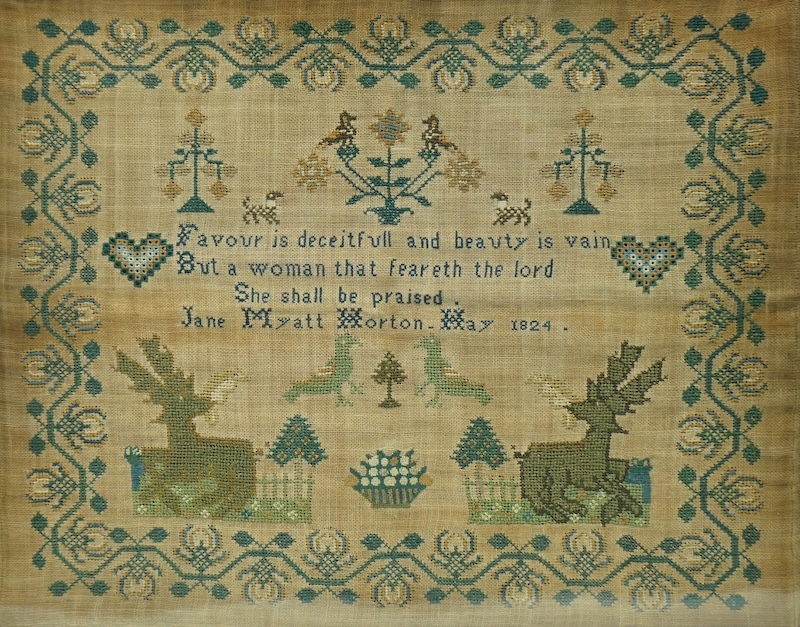 Favour is deceitfull and beauty is vain
But a woman that feareth the lord
She shall be praised .
Jane Myatt Horton - Hay 1824 .